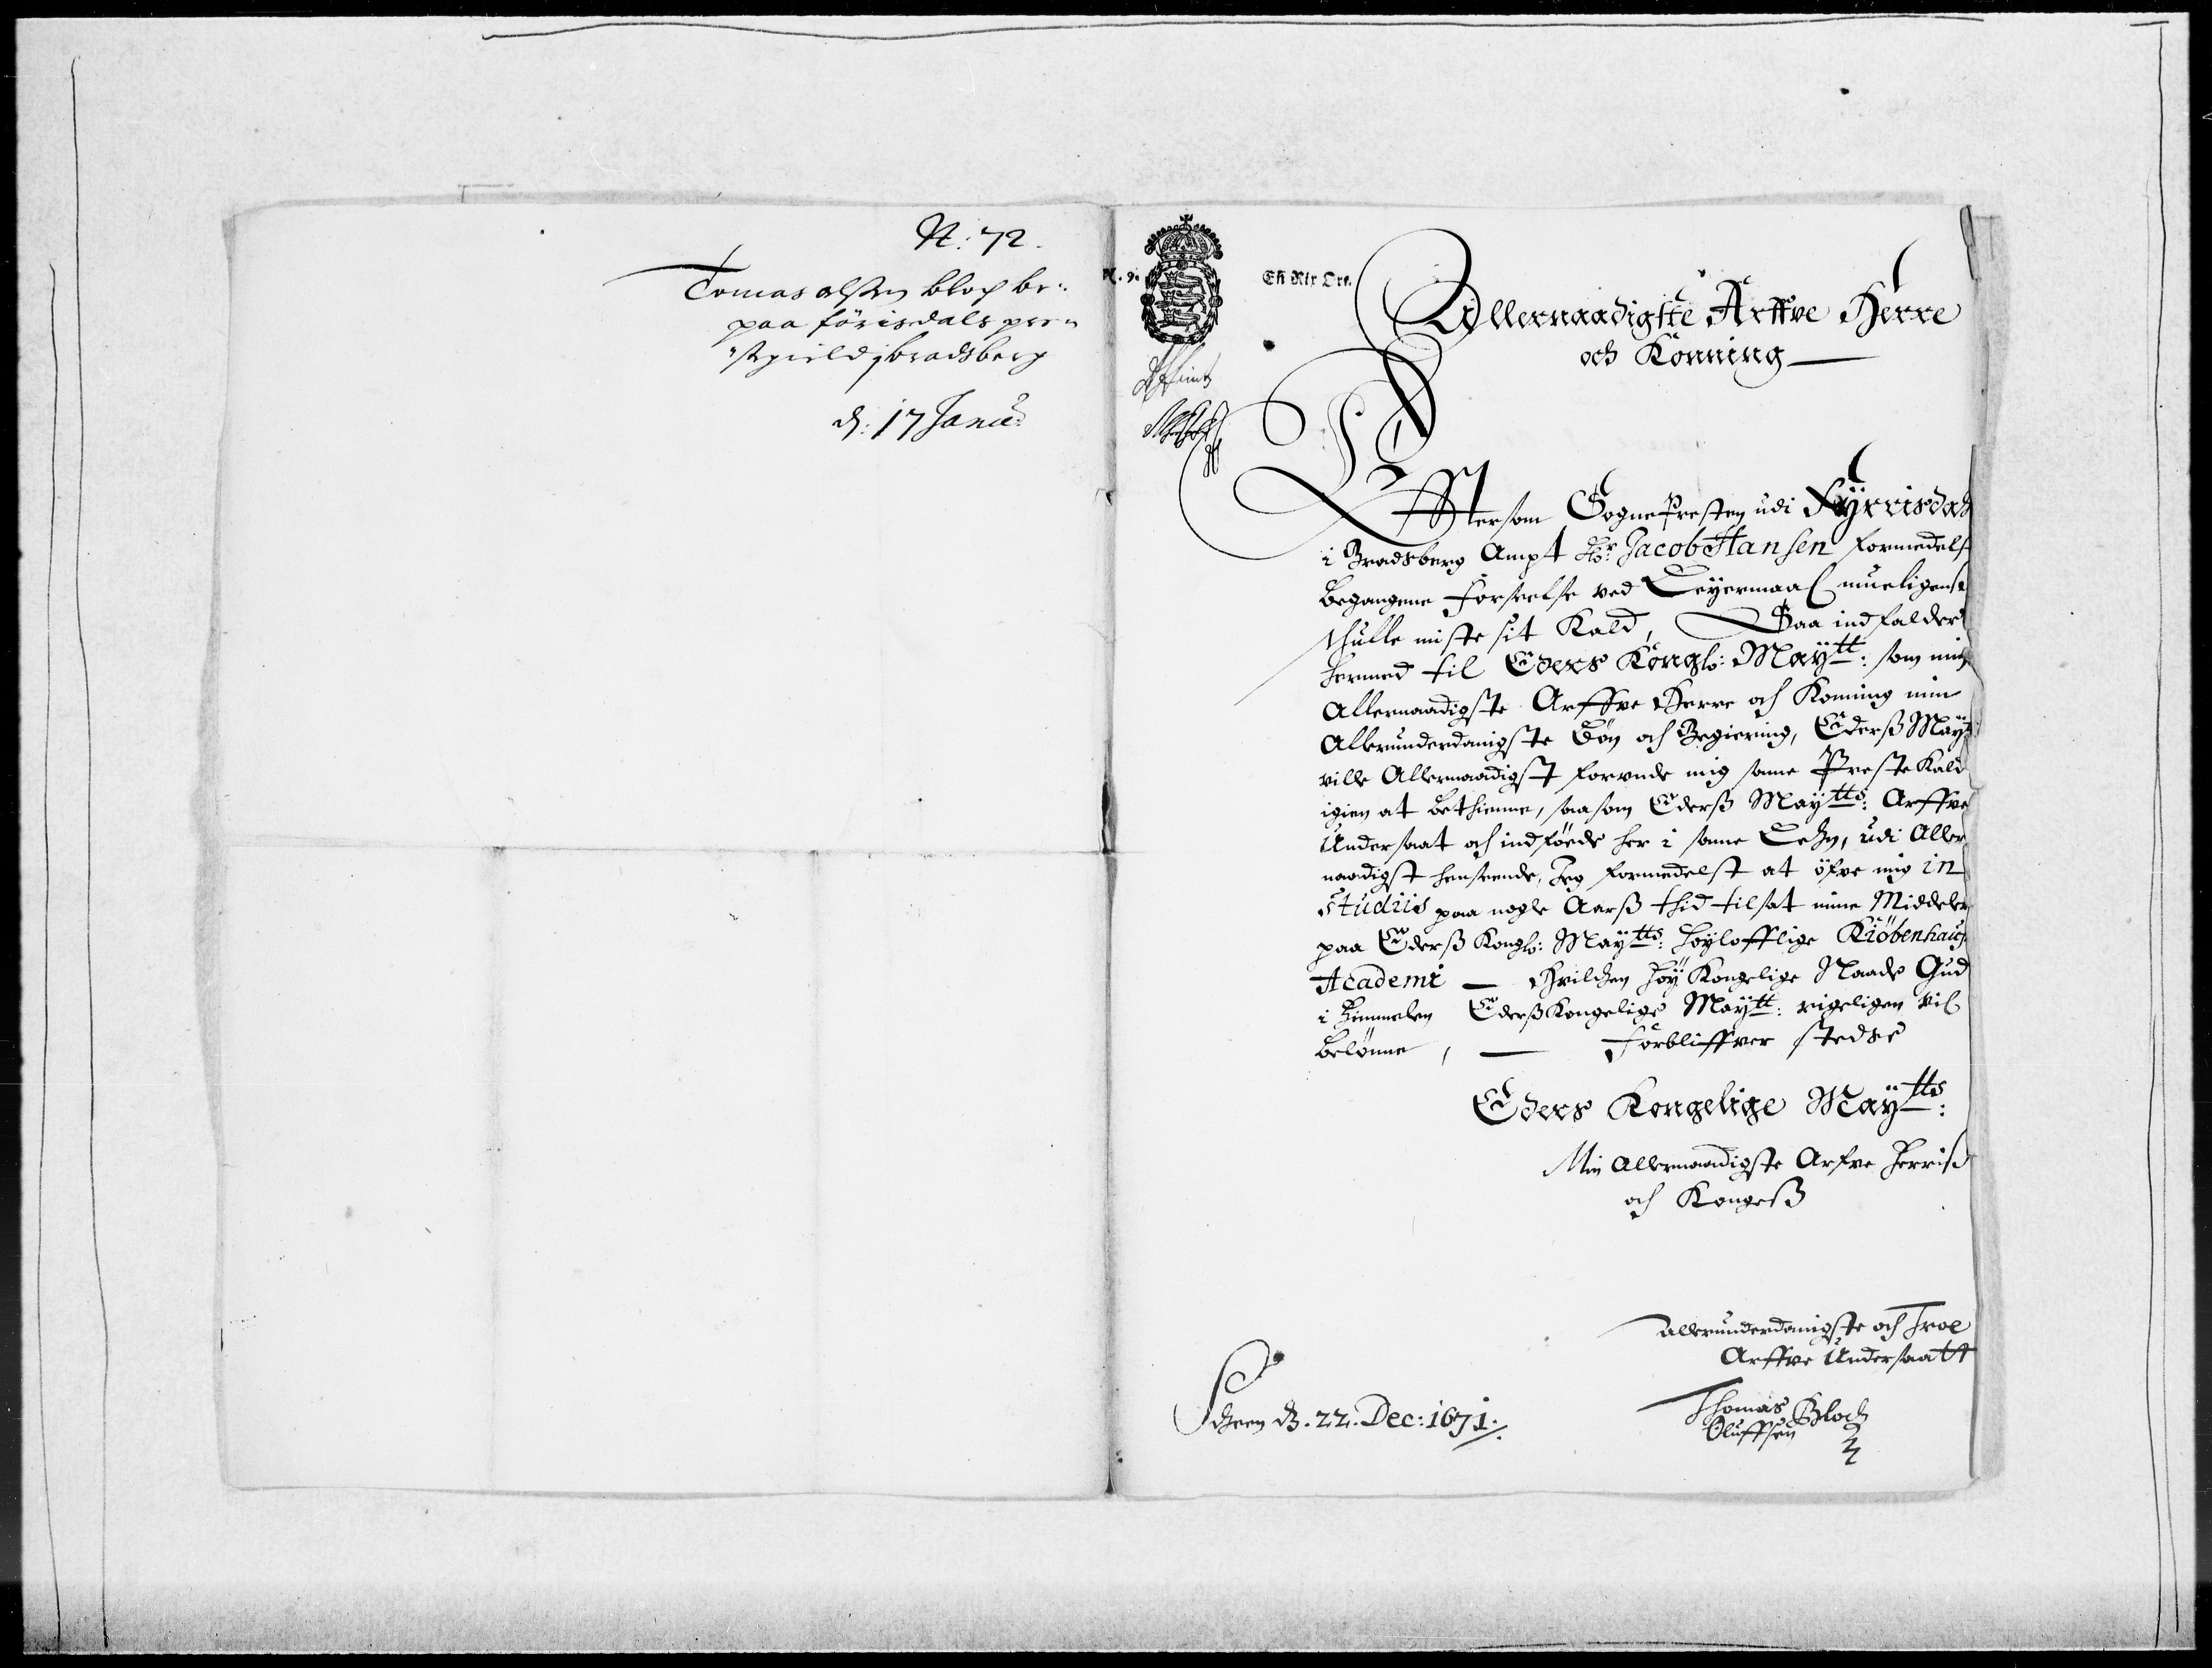 N: 72.
Tomas olssen bloch be¬
paa förisdals pre¬
stgield j bradsberg
d: 17 Janu:
N. 9.
En Rix Ort.
Allernaadigste Arffve Herre
och Konning
Efftersom Sognepresten udi Fÿrrisdal
i Bradsberg Ampt Hr: Jacob Hansen formedelst
begangene forseelse ved Leÿermaal mueligenst
schulle miste sit Kald, Saa indfalder
hermed til Eders Kongls: Maÿtt: som min
Allernaadigste Arffve Herre och Konning min
Allerunderdanigste bön och Begiering, Ederß Maÿtt
ville Allernaadigst forunde mig same Preste Kald
igien at bethienne, saasom Ederß Maÿtts: Arffve
Undersaat och indföede her i same Lehn, udi Aller
naadigst henseende, Jeg formedelst at öfve mig in
studiis paa nogle Aarß thid tilsat mine Middeler
paa Ederß Kongls: Maÿtts: höÿlofflige Kiöbenhaufs
Academi — Hvilchen höÿ Kongelige Naade Gud
i Himmelen Ederß Kongelige Maÿtt: rigeligen vil
belönne, — Forbliffver stedse
Eders Kongelige Maÿtts:
Min Allernaadigste Arfve Herris
och Kongeß
allerunderdanigste och Troe
Arffve Undersaatt
Scheen d. 22. Dec: 1671.
Thomas Bloch
Oluffsen